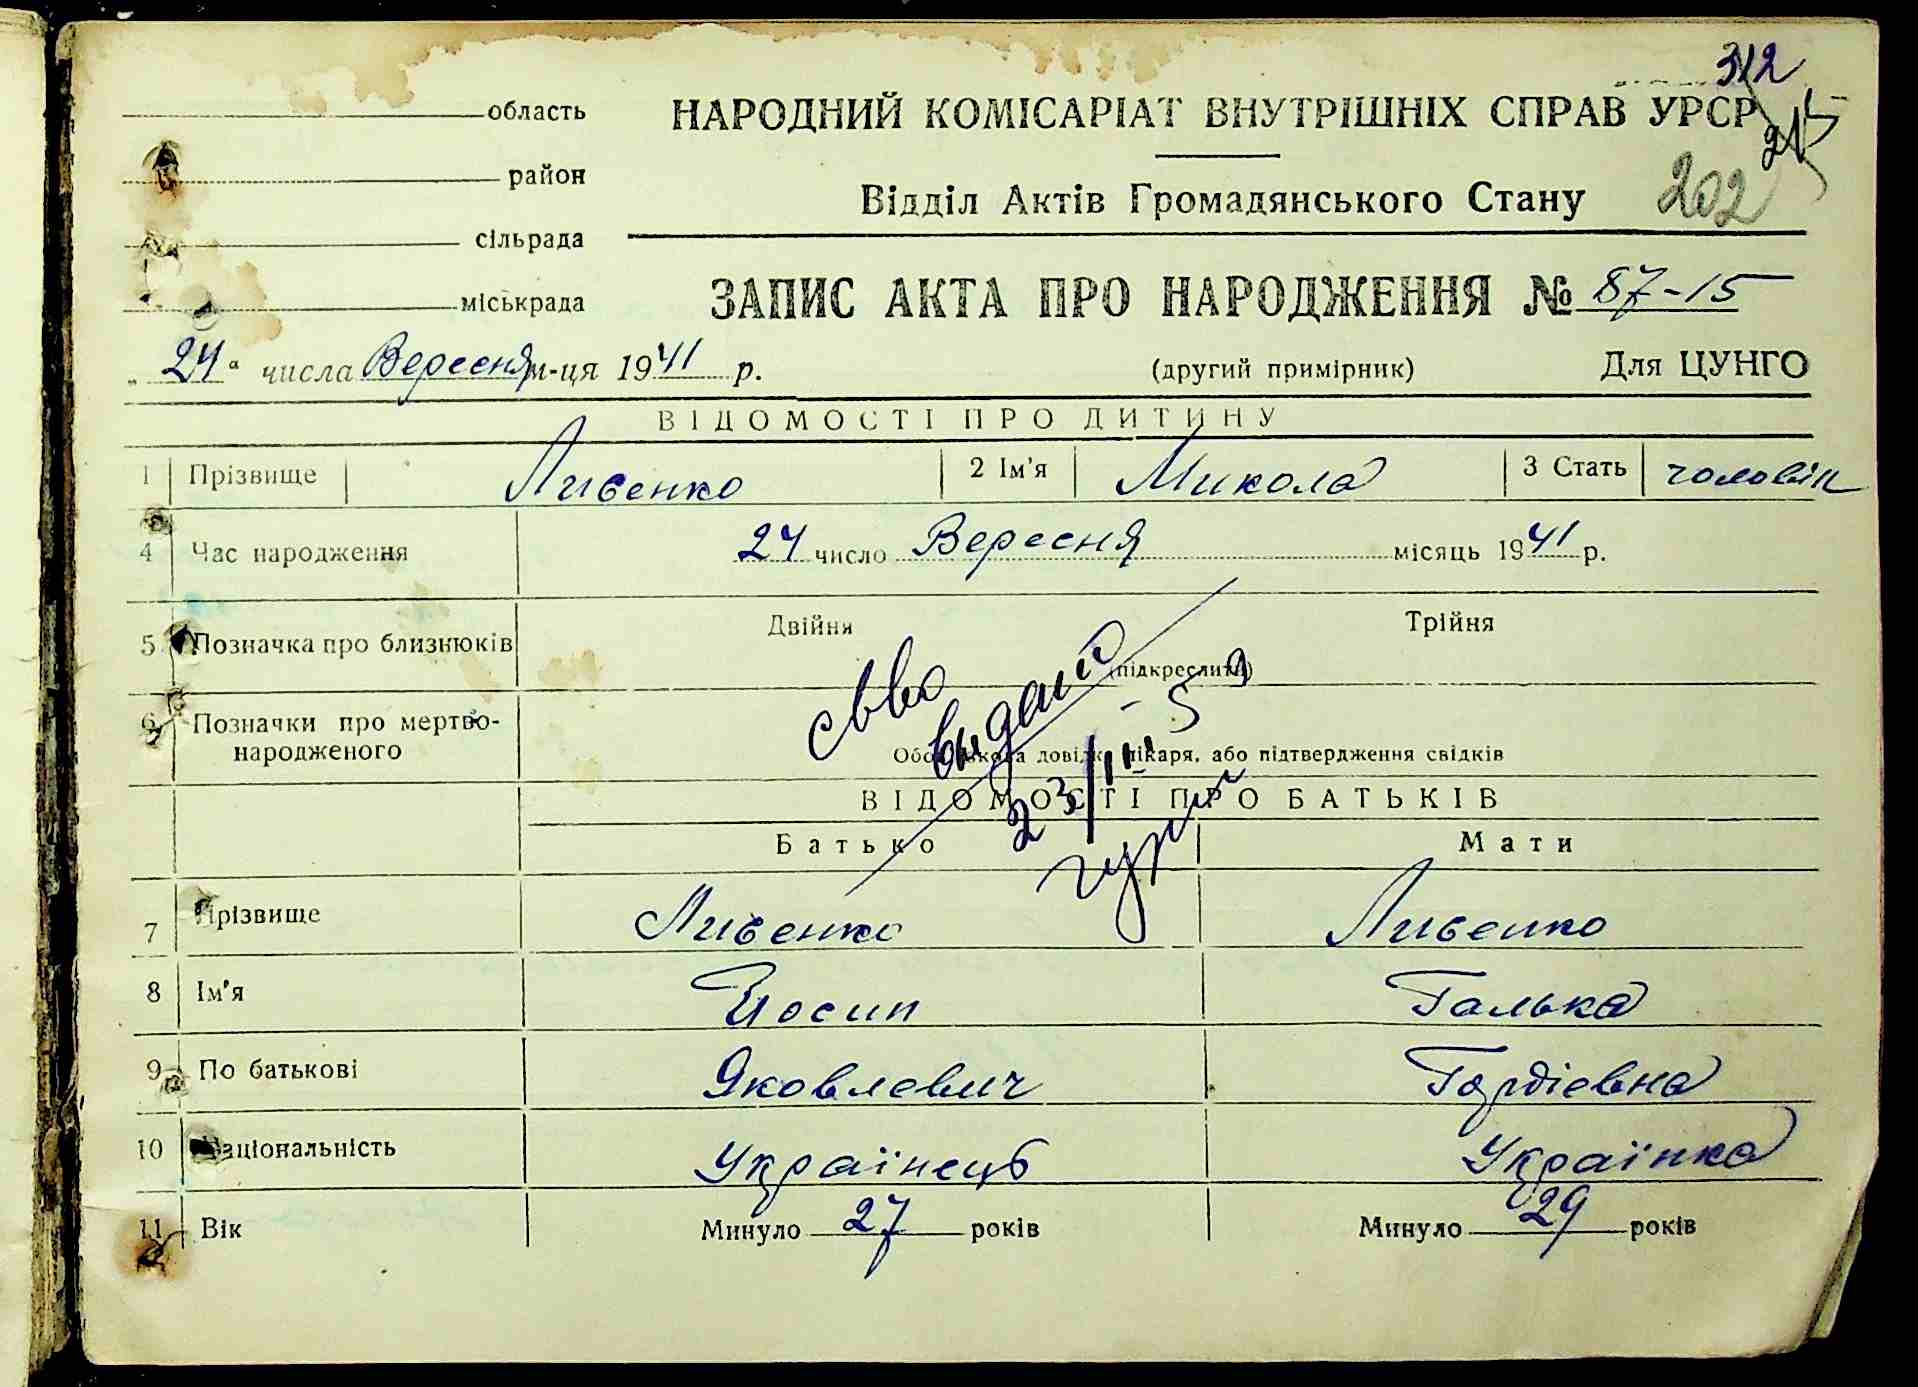 312
область
НАРОДНИЙ КОМІСАРІАТ ВНУТРІШНІХ СПРАВ УРСР
215
район
Відділ Актів Громадянського Стану 202
сільрада
міськрада
ЗАПИС АКТА ПРО НАРОДЖЕННЯ № 87-15
„24“ числа Вересня м-ця 1941 р.
(другий примірник) Для ЦУНГО
ВІДОМОСТІ ПРО ДИТИНУ
1 Прізвище Ливенко 2 Ім'я Микола 3 Стать чоловік
4 Час народження 24 число Вересня місяць 1941 р.
5 Позначка про близнюків Двійня Трійня
(підкреслити)
6 Позначки про мертво-
народженого
Обов'язкова довідка лікаря, або підтвердження свідків
свво
видані
23/III - 5
ВІДОМОСТІ ПРО БАТЬКІВ
Батько Мати
7 Прізвище Ливенко Ливенко
8 Ім'я Йосип Галька
9 По батькові Яковлевич Гордіевна
10 Національність Українець Українка
11 Вік Минуло 27 років Минуло 29 років